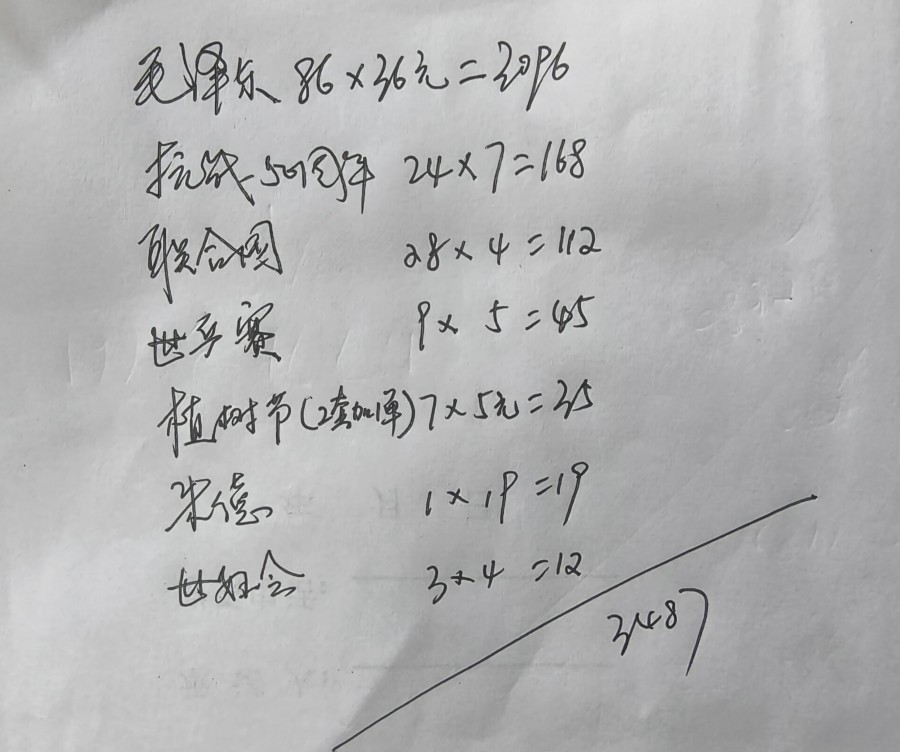 毛泽东 86×36元=3096
抗战50周年 24×7=168
联合国 28×4=112
世乒赛 9×5=45
植树节(2套加1单)7×5元=35
朱德 1×19=19
世妇会 3×4=12
3487